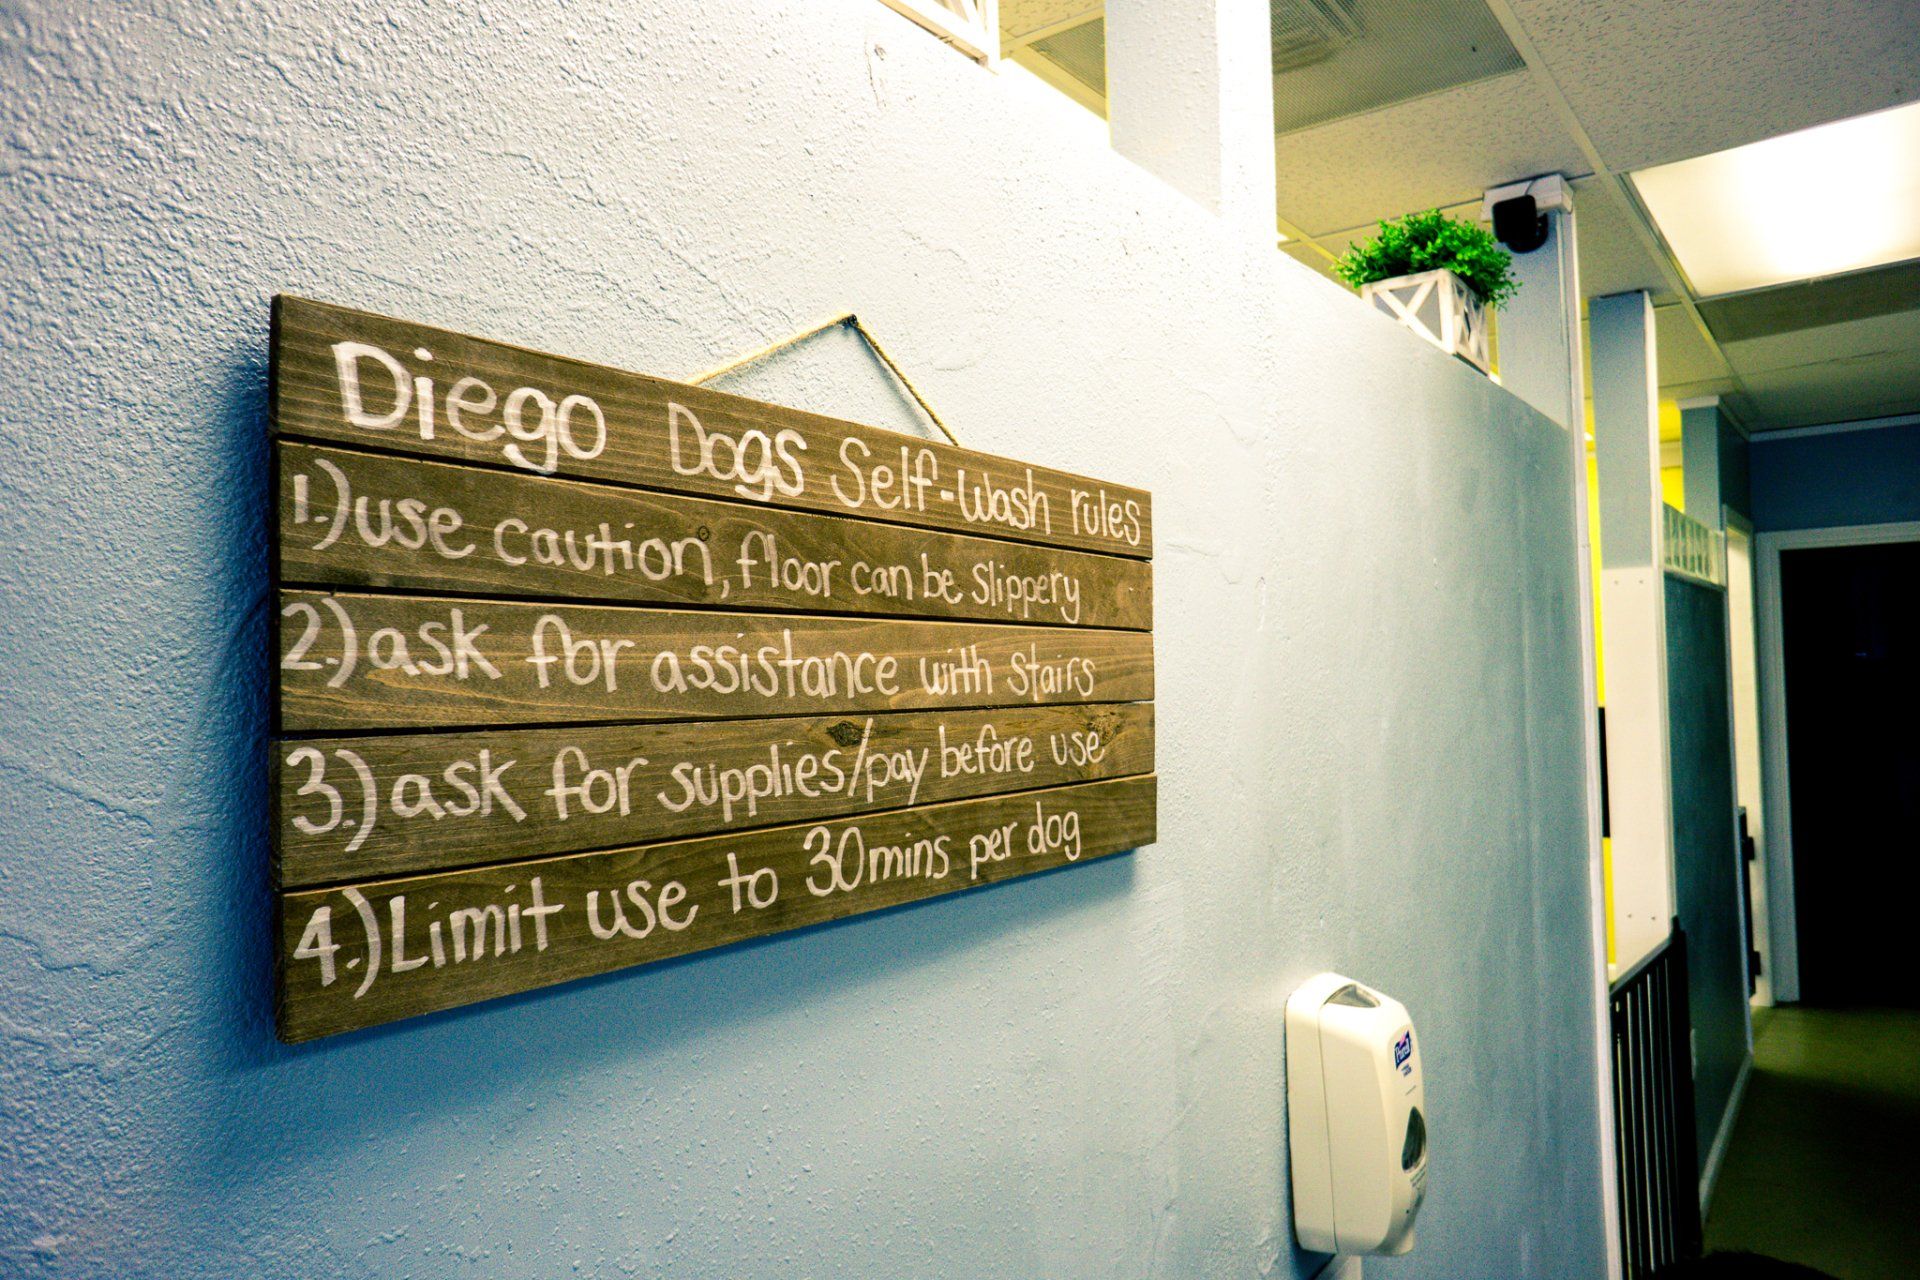 Diego Dogs Self-Wash rules
1.) use caution, floor can be slippery
2.) ask for assistance with stairs
3.) ask for supplies/pay before use
4.) Limit use to 30mins per dog
Purell